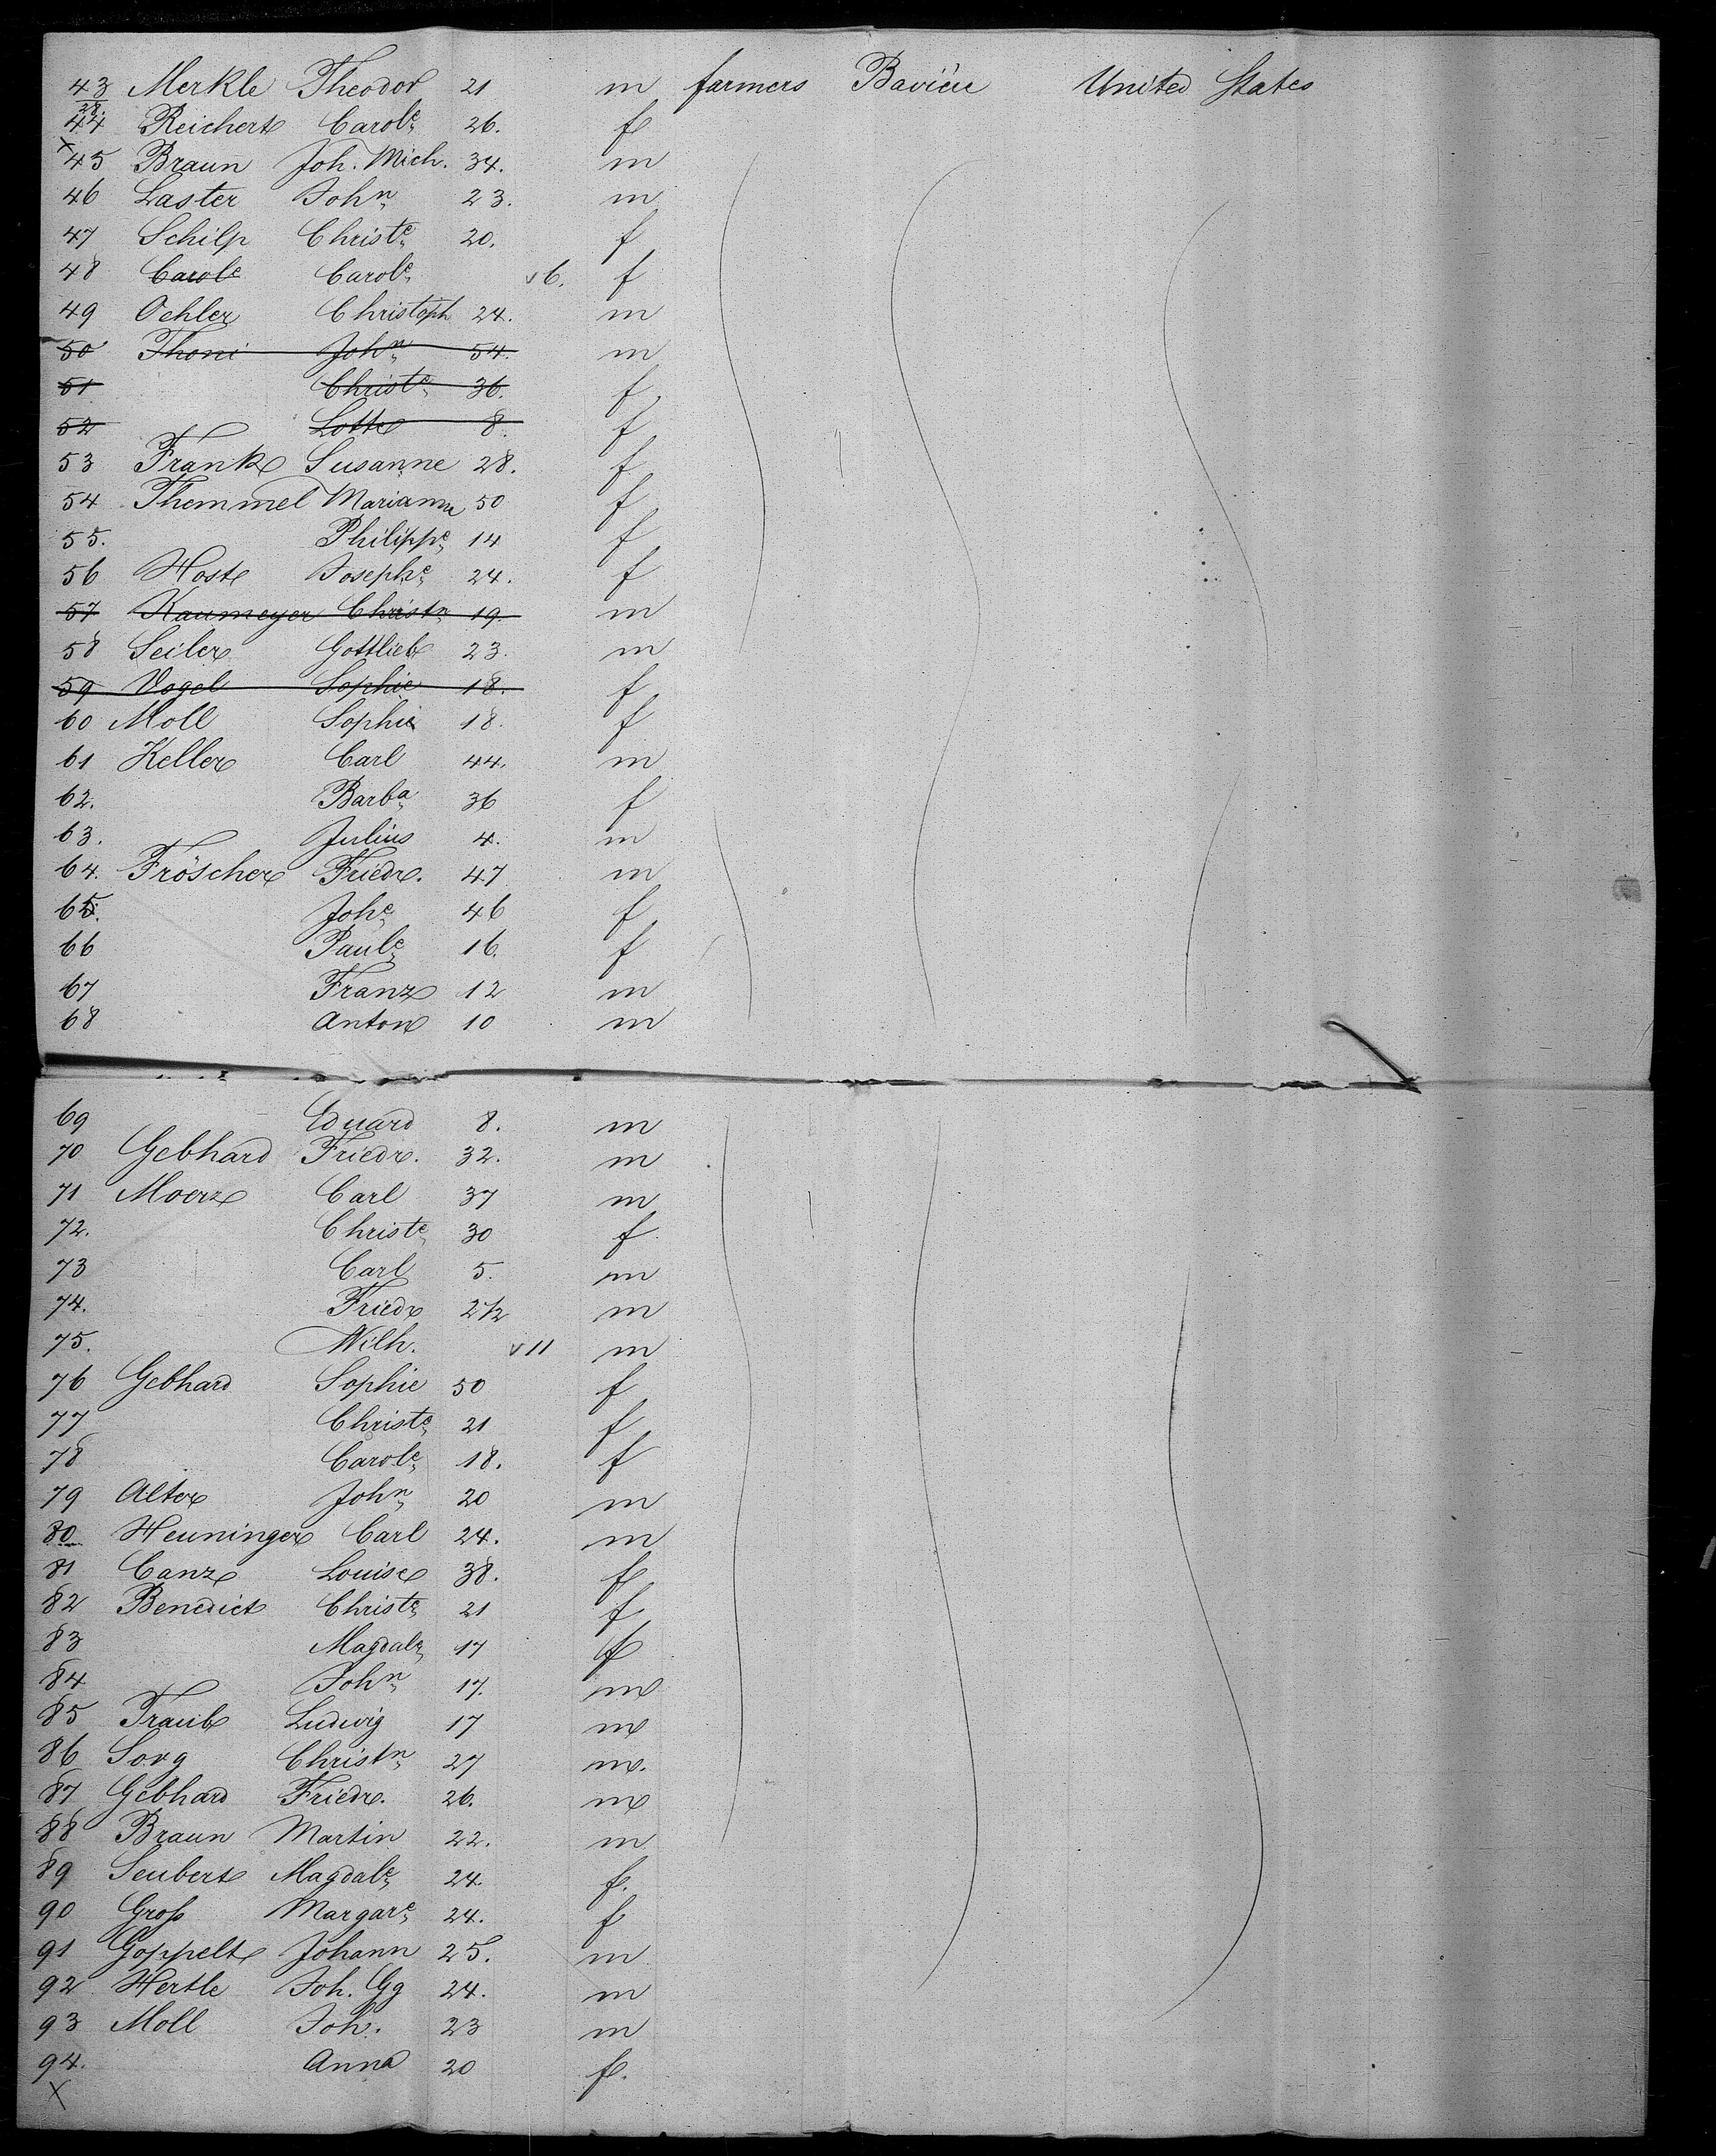 43 Merkle Theodor 21 m farmers Bavière United States
38.
44 Reichert Carole 26. f
x 45 Braun Joh. Mich. 34. m
46 Laster John 23. m
47 Schilp Christe 20. f
48 Carole Carole v 6. f
49 Oehler Christoph 24. m
50 Thoni John 54. m
51 Christe 36. f
52 Lotte 8. f
53 Frank Susanne 28. f
54 Themmel Marianne 50 f
55. Philippe 14 f
56 Host Josephe 24. f
57 Kaumeyer Christn 19. m
58 Seiler Gottlieb 23. m
59 Vogel Sophie 18. f
60 Moll Sophie 18. f
61 Keller Carl 44. m
62. Barba 36 f
63. Julius 4. m
64. Fröscher Friedr. 47 m
65. Johe 46 f
66 Paule 16. f
67 Franz 12 m
68 Anton 10 m
69 Eduard 8. m
70 Gebhard Friedr. 32. m
71 Moerz Carl 37 m
72. Christe 30 f
73 Carl 5. m
74. Friedr 2 1/2 m
75. Wilh. v 11 m
76 Gebhard Sophie 50 f
77 Christe 21 f
78 Carole 18. f
79 Alter John 20 m
80 Heuninger Carl 24. m
81 Canz Louise 38. f
82 Benedict Christe 21 f
83 Magdale 17 f
84 John 17. m
85 Traub Ludwig 17 m
86 Sorg Christn 27 m.
87 Gebhard Friedr. 26. m
88 Braun Martin 22. m
89 Seubert Magdale 24. f.
90 Groß Margare 24. f
91 Goppelt Johann 25. m
92 Hertle Joh. Gg 24. m
93 Moll Joh. 23 m
94. Anna 20 f.
x